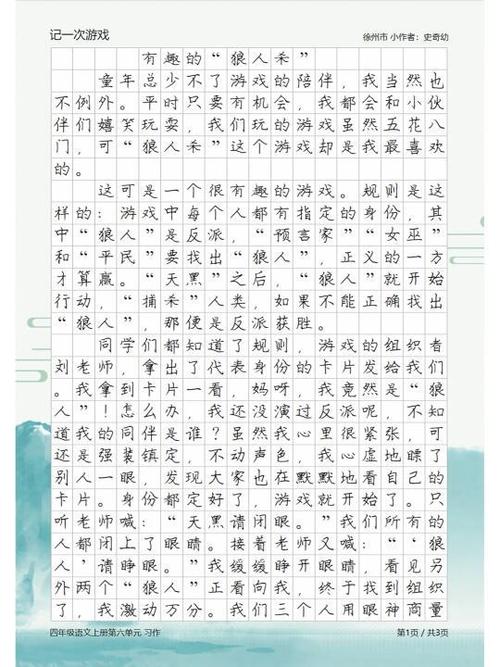 记一次游戏
徐州市 小作者：史奇幼
有趣的“狼人杀”
童年总少不了游戏的陪伴，我当然也
不例外。平时只要有机会，我都会和小伙
伴们嬉笑玩耍，我们玩的游戏虽然五花八
门，可“狼人杀”这个游戏却是我最喜欢
的。
这可是一个很有趣的游戏。规则是这
样的：游戏中每个人都有指定的身份，其
中“狼人”是反派，“预言家”“女巫”
和“平民”要找出“狼人”，正义的一方
才算赢。“天黑”之后，“狼人”就开始
行动，“捕杀”人类，如果不能正确找出
“狼人”，那便是反派获胜。
同学们都知道了规则，游戏的组织者
刘老师，拿出了代表身份的卡片发给我们
。我拿到卡片一看，妈呀，我竟然是“狼
人”！怎么办，我还没演过反派呢，不知
道我的同伴是谁？虽然我心里很紧张，可
还是强装镇定，不动声色，我心虚地瞟了
别人一眼，发现大家也在默默地看自己的
卡片。身份都定好了，游戏就开始了。只
听老师喊：“天黑请闭眼。”我们所有的
人都闭上了眼睛。接着老师又喊：“‘狼
人’请睁眼。”我缓缓睁开眼睛，看见另
外两个“狼人”正看向我，终于找到组织
了，我激动万分。我们三个人用眼神商量
四年级语文上册第六单元 习作
第1页 / 共3页